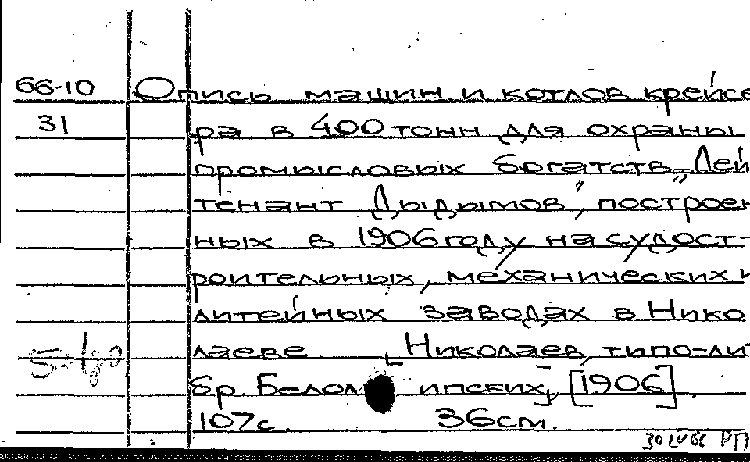 66-10 Опись машин и котлов крейсе
31 ра в 400 тонн для охраны
промысловых богатств „Лей
тенант Дыдымов", построен
ных в 1906 году на судост-
роительных, механических и
литейных заводах в Нико
лаеве [Николаев, типо-ли
бр. Белол ипских], [1906].
107 с. 36 см.